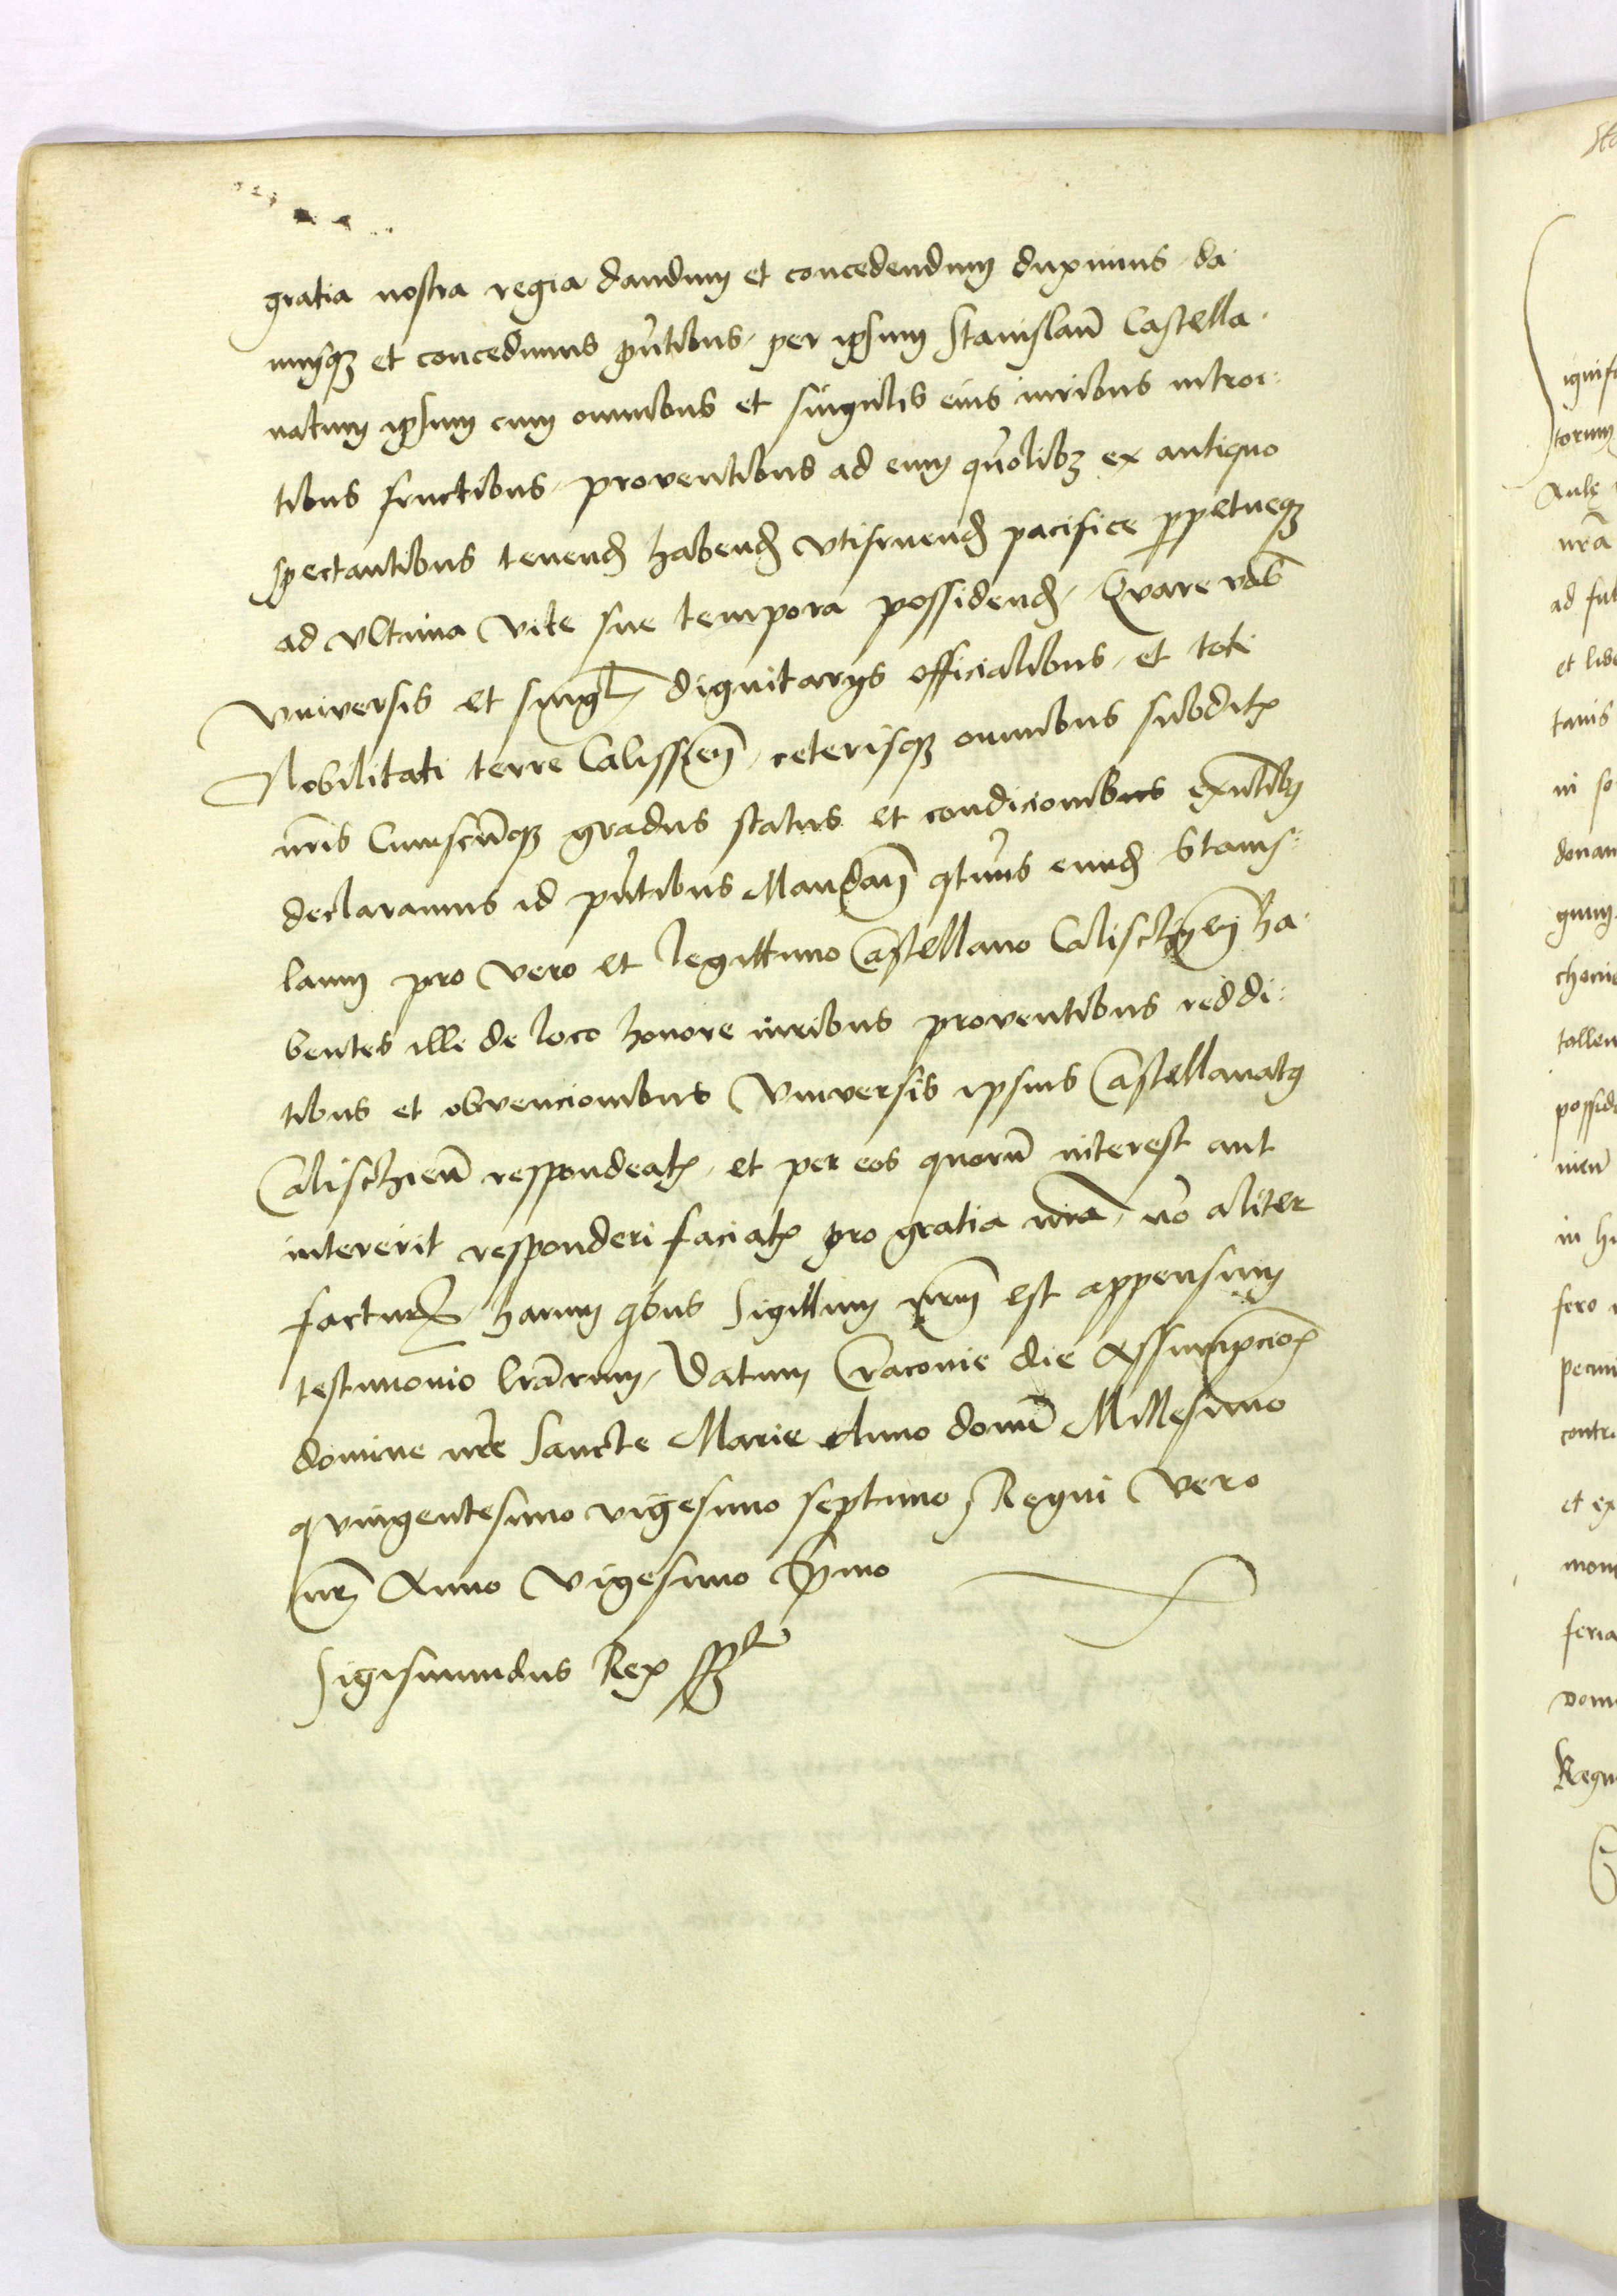 gratia nostra regia dandum et concedendum duximus da
musqꝫ et concedimus pñtibus, per ipsum Stanislaũ Castella
natum ipsum cum omnibus et singulis eius iuribus introi
tibus fructibus, proventibus ad eum qũolibꝫ ex antiquo
spectantibus tenend habend utifruend pacifice ꝑpetueqꝫ
ad ultima vite sue tempora possidend, Quare vob
Universis et singl dignitarijs officialibus, et toti
Nobilitati terre Calissień, ceterisqꝫ omnibus subditꝭ
nr̃is Cuiuscũqꝫ gradus status et condicionibus exñtibꝫ
declaramus id pñtibus Mandań qtiñus eund Stanis
laum pro vero et legittimo Castellano Calischień ha
bentes illi de loco honore iuribus proventibus reddi
tibus et obvencionibus Universis ipsius Castellanatꝰ
Calischień respondeatꝭ, et per eos quorũ interest aut
intererit responderi faciatꝭ pro gratia nr̃a, nõ aliter
facturi, harum qbus Sigillum nr̃m est appensum
testimonio lr̃arum, Datum Cracovie die Assumpcioꝭ
domine nr̃e Sancte Marie Anno domi Millesimo
quingentesimo vigesimo septimo, Regni vero
nr̃i Anno Vigesimo Pmo
Sigismundus Rex ss